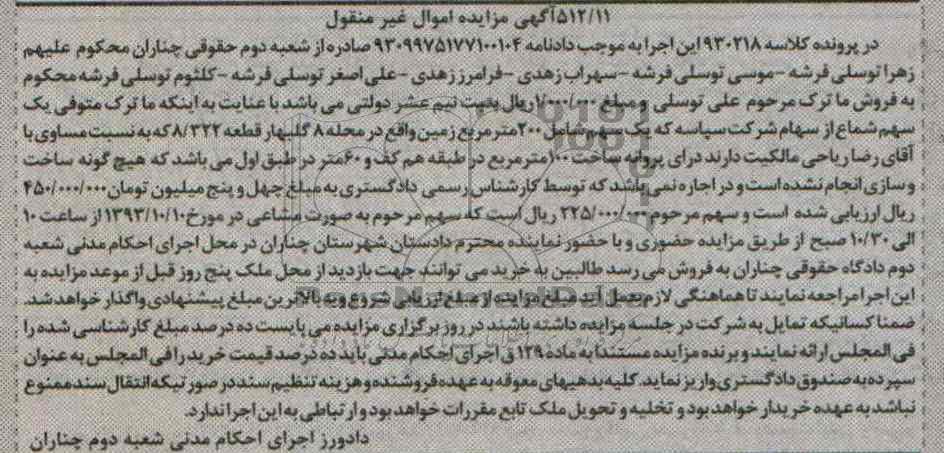 ۵۱۲/۱۱آگهی مزایده اموال غیر منقول
در پرونده کلاسه ۹۳۰۲۱۸ این اجرا به موجب دادنامه ۹۳۰۹۹۷۵۱۷۷۱۰۰۱۰۴ صادره از شعبه دوم حقوقی چناران محکوم علیهم
زهرا توسلی فرشه -موسی توسلی فرشه -سهراب زهدی -فرامرز زهدی -علی اصغر توسلی فرشه -کلثوم توسلی فرشه محکوم
به فروش ما ترک مرحوم علی توسلی و مبلغ ۱/۰۰۰/۰۰۰ریال بابت نیم عشر دولتی می باشد با عنایت به اینکه ما ترک متوفی یک
سهم شماع از سهام شرکت سپاسه که یک سهم شامل ۲۰۰ متر مربع زمین واقع در محله ۸ گلبهار قطعه ۸/۳۲۲ که به نسبت مساوی با
آقای رضا ریاحی مالکیت دارند درای پروانه ساخت ۱۰۰متر مربع در طبقه هم کف و ۶۰ متر در طبق اول می باشد که هیچ گونه ساخت
و سازی انجام نشده است و در اجاره نمی باشد که توسط کارشناس رسمی دادگستری به مبلغ چهل و پنج میلیون تومان۴۵۰/۰۰۰/۰۰۰
ریال ارزیابی شده است و سهم مرحوم ۲۲۵/۰۰۰/۰۰۰ ریال است که سهم مرحوم به صورت مشاعی در مورخ ۱۳۹۳/۱۰/۱۰ از ساعت ۱۰
الی ۱۰/۳۰ صبح از طریق مزایده حضوری و با حضور نماینده محترم دادستان شهرستان چناران در محل اجرای احکام مدنی شعبه
دوم دادگاه حقوقی چناران به فروش می رسد طالبین به خرید می توانند جهت بازدید از محل ملک پنج روز قبل از موعد مزایده به
این اجرا مراجعه نمایند تا هماهنگی لازم بعمل آید مبلغ مزایده از مبلغ ارزیابی شروع و به بالاترین مبلغ پیشنهادی واگذار خواهد شد.
ضمنا کسانیکه تمایل به شرکت در جلسه مزایده داشته باشند در روز برگزاری مزایده می بایست ده درصد مبلغ کارشناسی شده را
فی المجلس ارائه نمایند و برنده مزایده مستندا به ماده ۱۲۹ ق اجرای احکام مدنی باید ده درصد قیمت خرید را فی المجلس به عنوان
سپرده به صندوق دادگستری واریز نماید. کلیه بدهیهای معوقه به عهده فروشنده و هزینه تنظیم سند در صورتیکه انتقال سند ممنوع
نباشد به عهده خریدار خواهد بود و تخلیه و تحویل ملک تابع مقررات خواهد بود و ارتباطی به این اجرا ندارد.
دادورز اجرای احکام مدنی شعبه دوم چناران